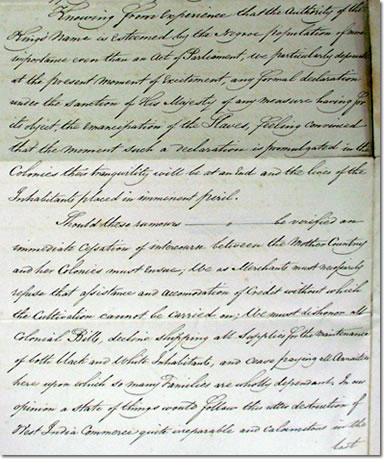 Knowing from Experience that the Authority of the
King's Name is esteemed by the Negroe population of more
importance even than an Act of Parliament, We particularly deprecate
at the present moment of Excitement, any formal declaration
under the sanction of His Majesty of any measure having for
its object, the emancipation of the Slaves, feeling convinced
that the moment such a declaration is promulgated in the
Colonies their tranquility will be at an End and the lives of the
Inhabitants placed in immenent peril.
Should these rumours be verified an
immediate Cessation of intercourse between the Mother Country
and her Colonies must Ensue, We as Merchants must necessarily
refuse that assistance and accomodation of Credit without which
the Cultivation cannot be carried on; We must dishonor all
Colonial Bills, decline shipping all Supplies for the maintenance
of both black and White Inhabitants, and Cease paying all Annuities
here upon which so many Families are wholly dependant. In our
opinion a State of things would follow the utter destruction of
West India Commerce quite irreparable and calamitous in the
last